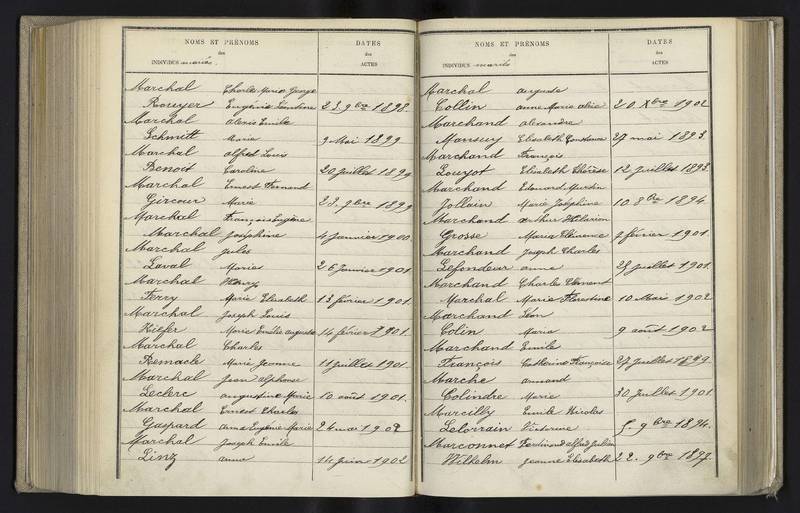 NOMS ET PRÉNOMS
des
INDIVIDUS mariés.
DATES
des
ACTES
Marchal Charles Marie George
Rouyer Eugénie Léontine 23. 9bre 1898.
Marchal Alexis Emile
Schmitt Marie 9 Mai 1899
Marchal Alfred Louis
Benoit Caroline 20 Juillet 1899
Marchal Ernest Fernand
Gircour Marie 23. 9bre 1899
Marchal François Eugène
Marchal Joséphine 4 Janvier 1900.
Marchal Jules
Laval Marie 26 Janvier 1901.
Marchal Henry
Ferry Marie Elisabeth 13 février 1901.
Marchal Joseph Louis
Kiefer Marie Emélie Auguste 14 février 1901.
Marchal Charles
Remacle Marie Jeanne 11 Juillet 1901.
Marchal Jean Alphonse
Leclerc Augustine Marie 10 août 1901.
Marchal Ernest Charles
Gaspard Anne Eugénie Marie 24 mai 1902
Marchal Joseph Emile
Linz Anna 14 Juin 1902
NOMS ET PRÉNOMS
des
INDIVIDUS mariés
DATES
des
ACTES
Marchal Auguste
Collin Anne Marie Alice 20. Xbre 1902
Marchand Alexandre
Mansuy Elisabeth Constance 27 mai 1893.
Marchand François
Louyot Elisabeth Thérèse 12 Juillet 1893.
Marchand Edouard
Jollain Marie Joséphine 10 8bre 1894
Marchand Arthur Hilarion
Grosse Maria Clémence 7 février 1901.
Marchand Joseph Charles
Lefondeur Anne 25 Juillet 1901.
Marchand Charles Clément
Marchal Marie Florestine 10 Mai 1902
Marchand Léon
Colin Maria 9 août 1902
Marchand Emile
François Catherine Françoise 27 Juillet 1899.
Marche Armand
Colindre Marie 30 Juillet 1901.
Marcilly Emile Nicolas
Lelorrain Victorine 5. 9bre 1894.
Marconnet Ferdinand Alfred Julien
Wilhelm Jeanne Elisabeth 22. 9bre 1897.